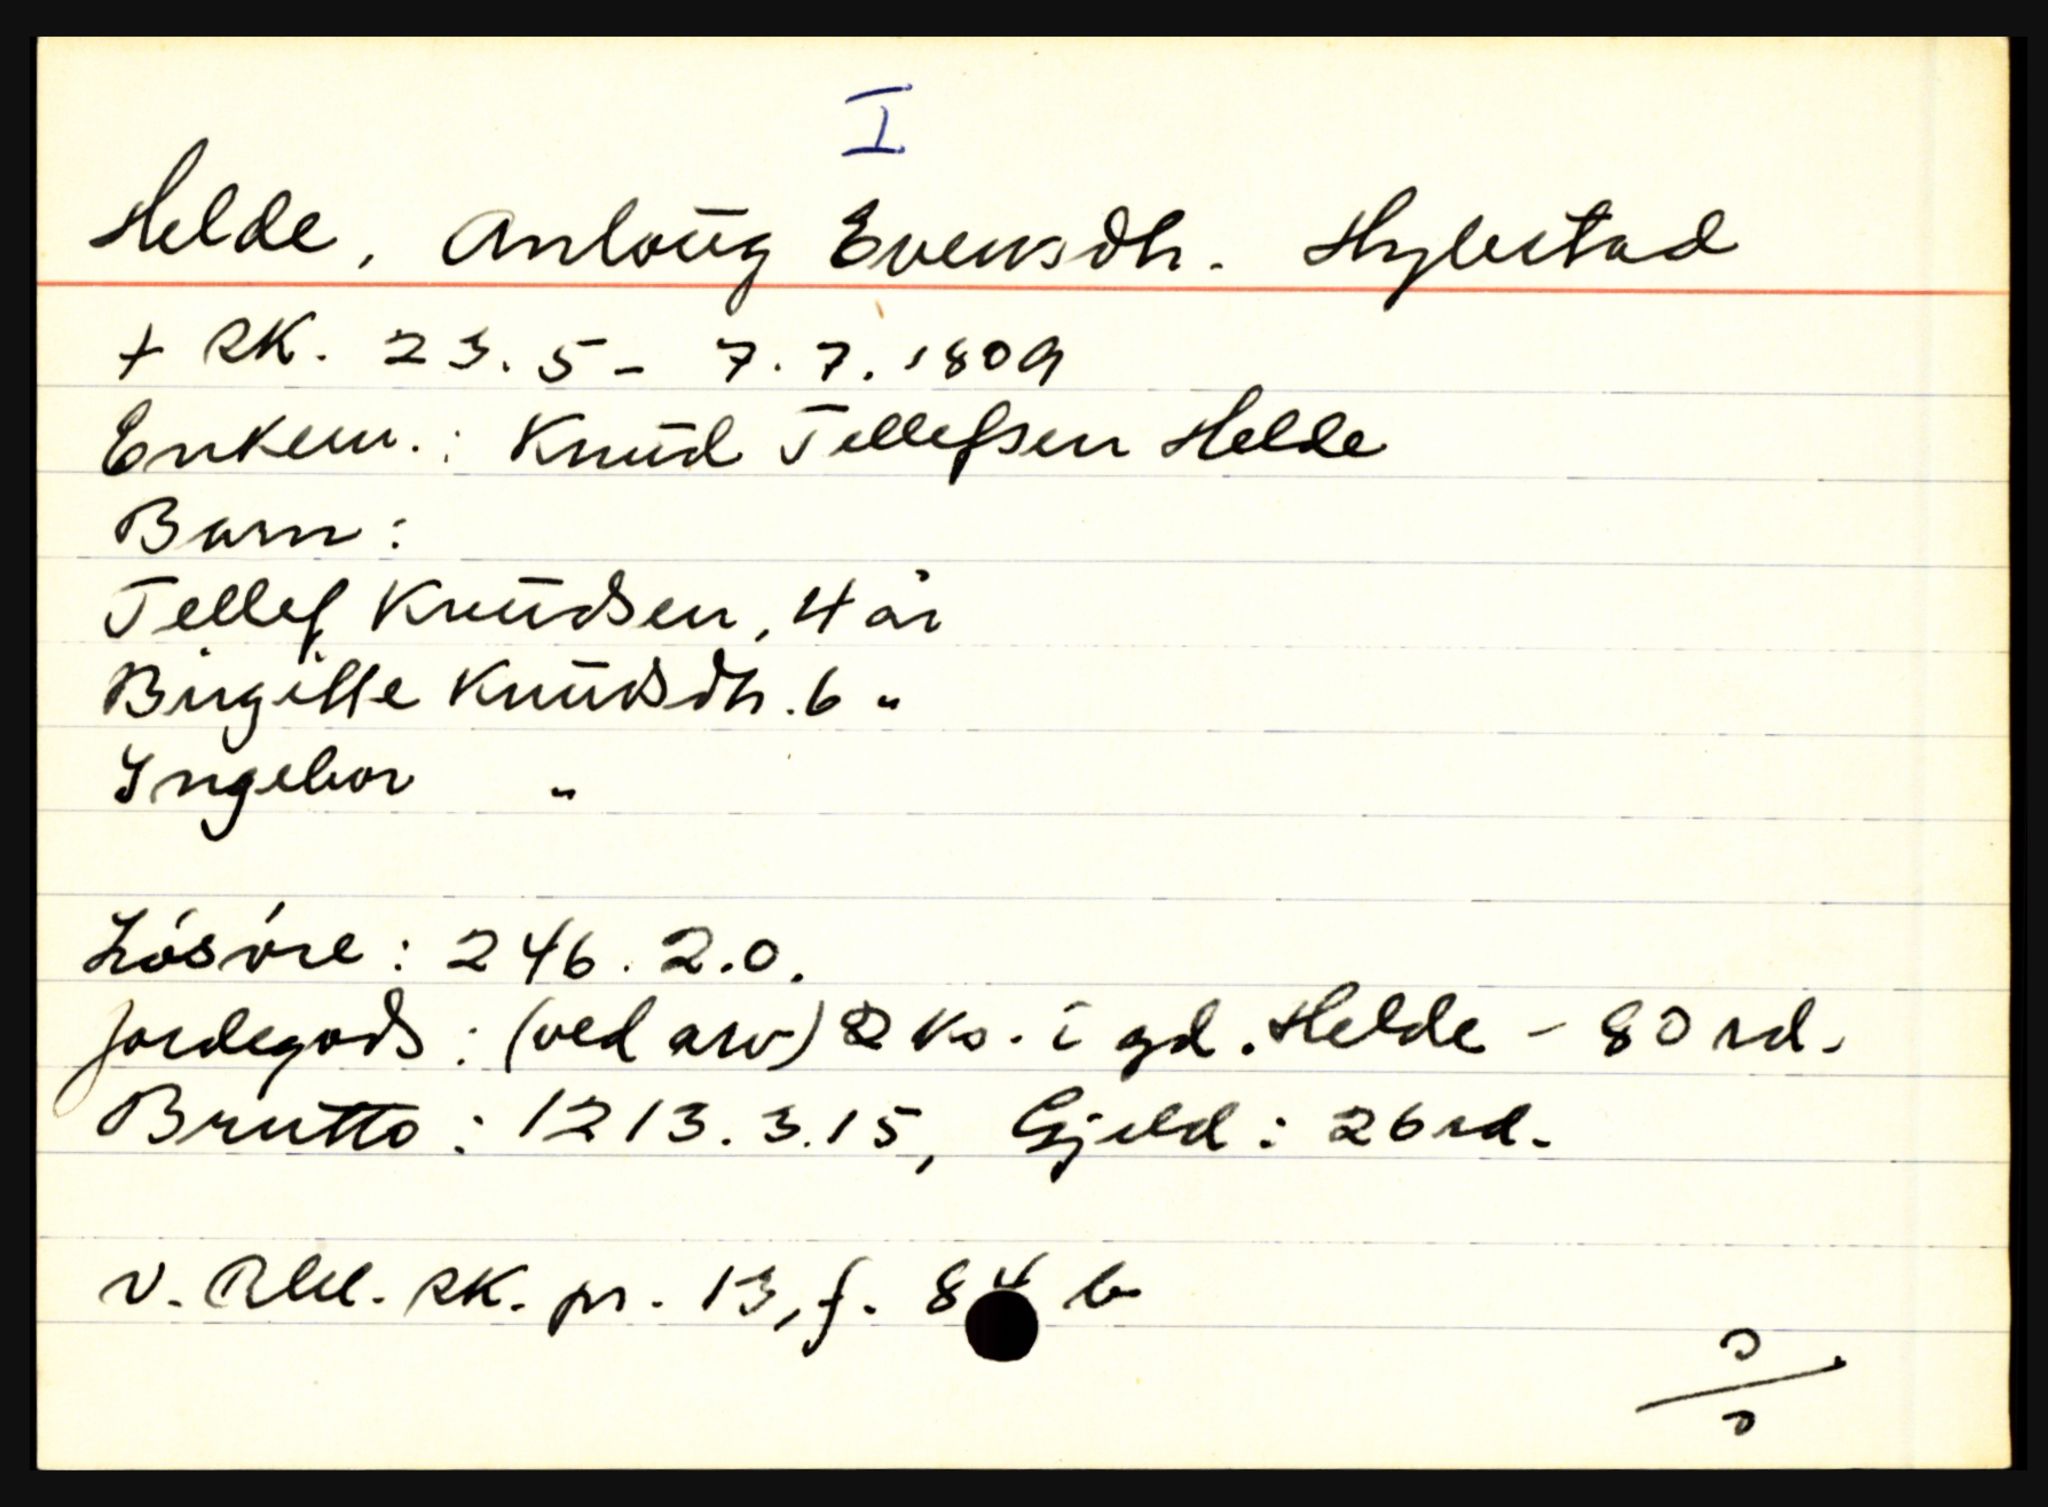 I
Helde, Anloūg Evensdtr. Hylestad
+ RK. 23.5 - 7.7.1809
Enkem.: Knūd Tellefsen Helde
Barn:
Tellef Knūdsen, 4 år
Birgitte Knūdsdtr. 6 "
Ingebor "
Lösöre: 246.2.0.
Jordegods: (ved arv) 2 ks. i gd. Helde - 80 rd.
Brutto: 1213.3.15, Gjeld: 26 rd.
V. Rbl. RK. pr. 13, f. 84 b